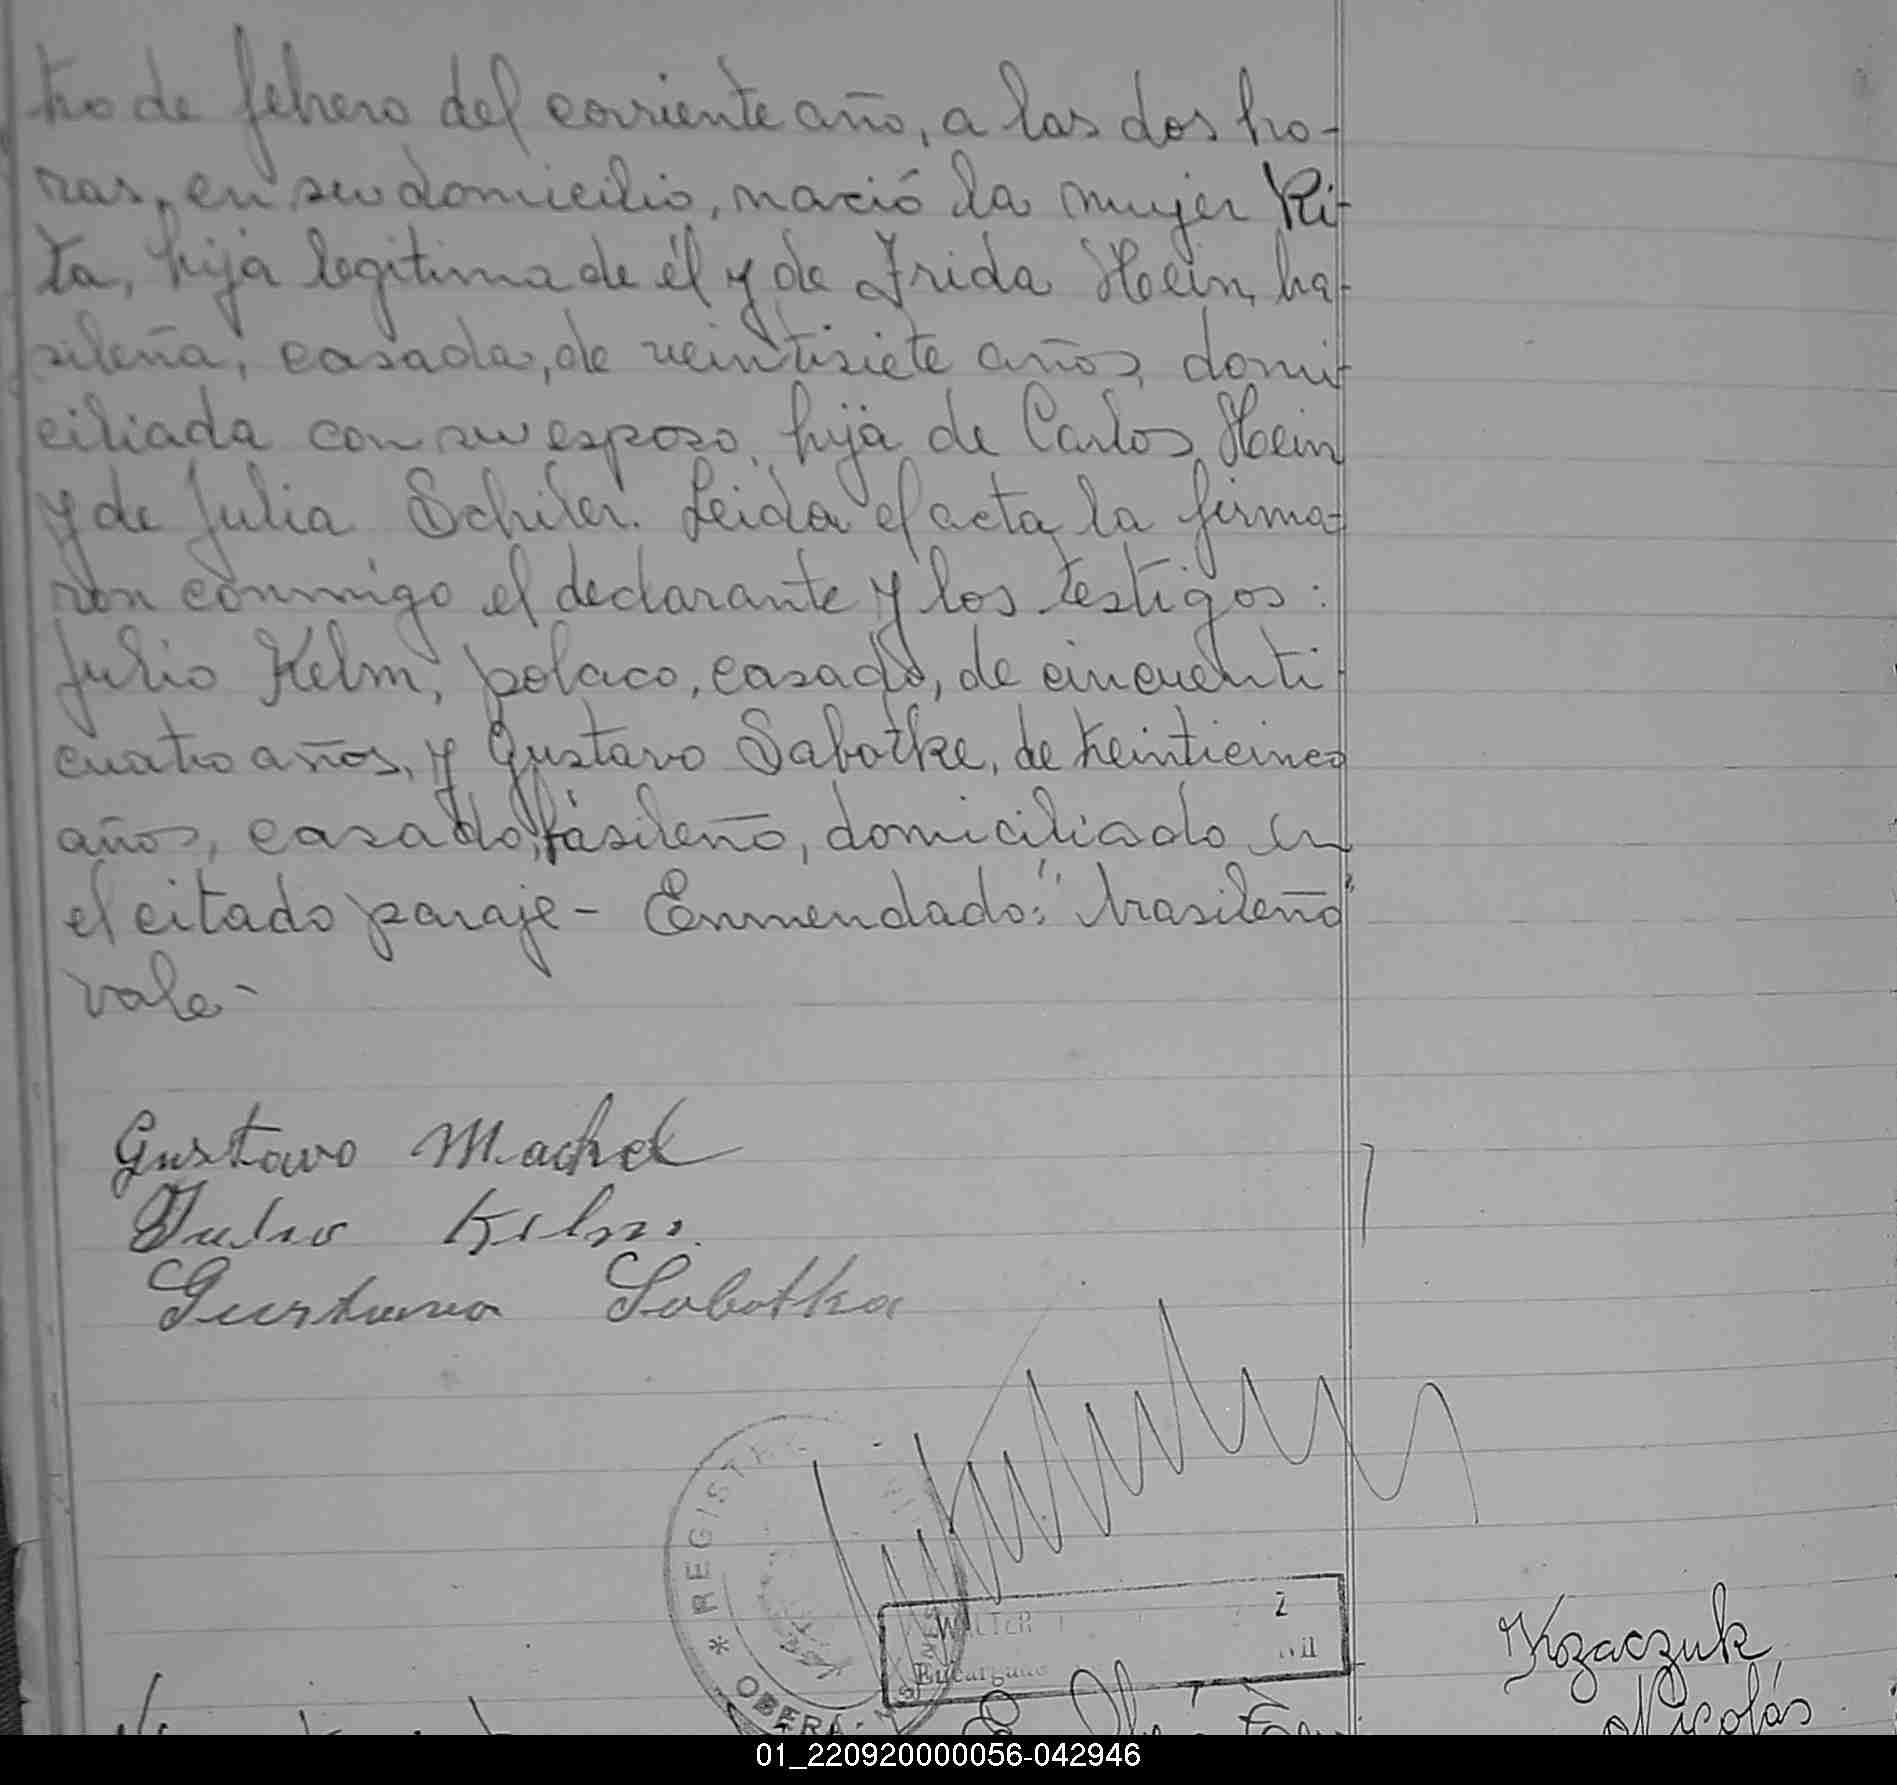 tro de febrero del corriente año, a las dos ho-
ras, en su domicilio, nació la mujer Ri-
ta, hija legitima de él y de Frida Hein, bra-
sileña, casada, de veintisiete años, domi-
ciliada con su esposo, hija de Carlos Hein
y de Julia Schiler. Leida el acta, la firma-
ron conmigo el declarante y los testigos:
Julio Kelm, polaco, casado, de cincuenti
cuatro años, y Gustavo Sabotke, de treinticinco
años, casado, brasileño, domiciliado en
el citado paraje - Enmendado: "brasileño"
vale-
Gustavo Machel
Julio Kelm.
Gustavo Sabotka
* REGISTR
OBERÁ - M
WALTER
Encargado
Kozaczuk
Nicolás
01_220920000056-042946